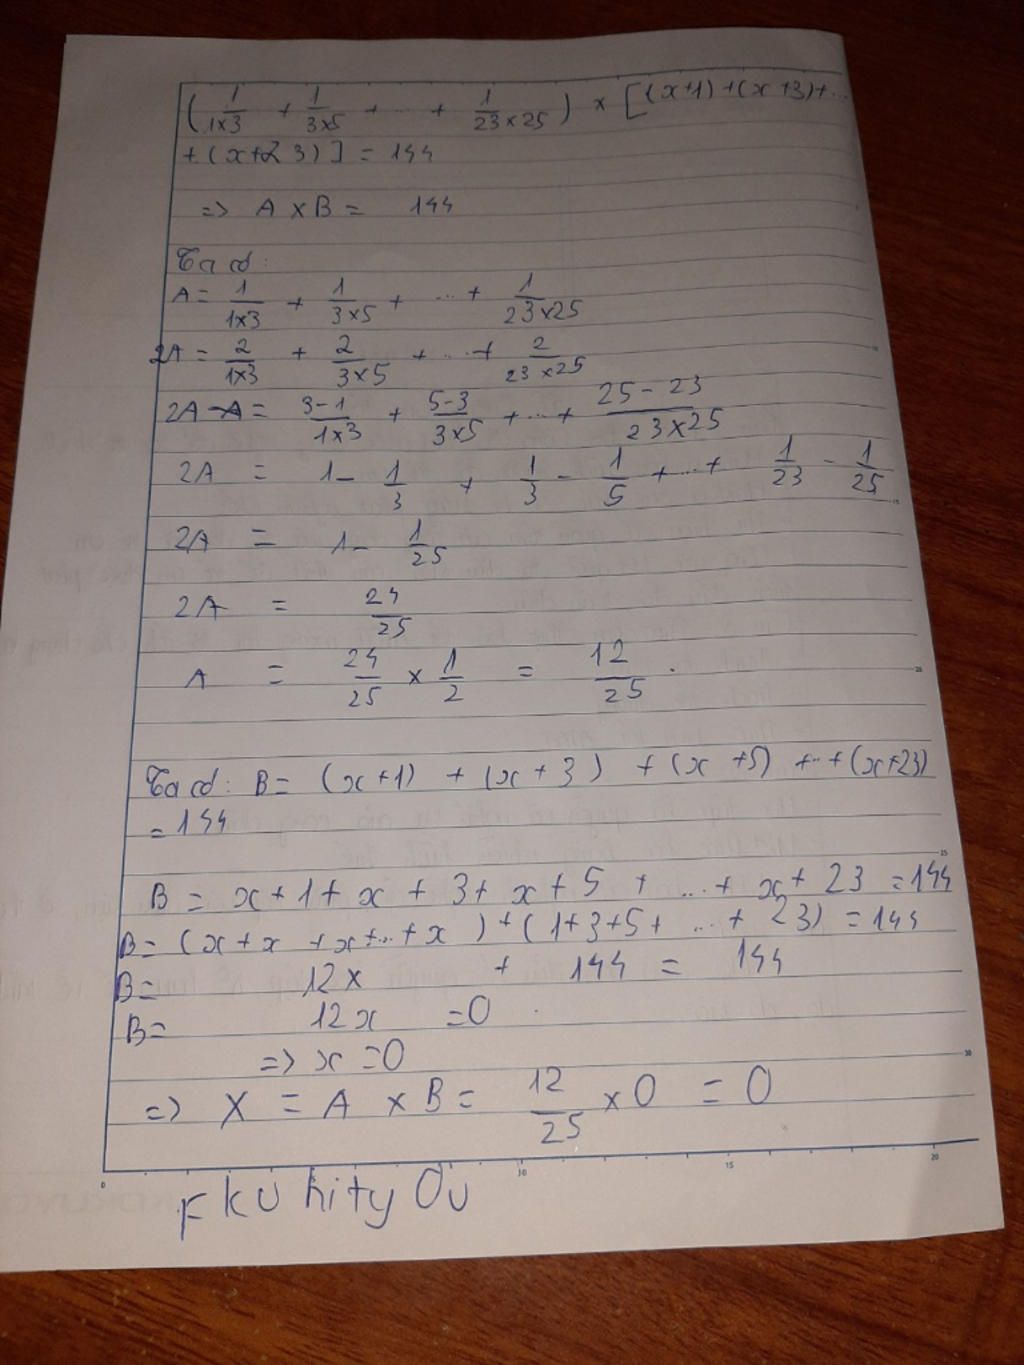 ( 1/1x3 + 1/3x5 + ... + 1/23x25 ) x [(x+1)+(x+3)+...
+ (x+23)] = 144
=> A x B = 144
Ta có:
A = 1/1x3 + 1/3x5 + ... + 1/23x25
2A = 2/1x3 + 2/3x5 + ... + 2/23x25
2A = 3-1/1x3 + 5-3/3x5 + ... + 25-23/23x25
2A = 1 - 1/3 + 1/3 - 1/5 + ... + 1/23 - 1/25
2A = 1 - 1/25
2A = 24/25
A = 24/25 x 1/2 = 12/25 .
Ta có: B = (x+1) + (x+3) + (x+5) + ... + (x+23)
= 144
B = x+1+x+3+x+5 + ... + x+23 = 144
B = (x+x+x+...+x) + (1+3+5+ ... + 23) = 144
B = 12x + 144 = 144
B = 12x = 0
=> x = 0
=> X = A x B = 12/25 x 0 = 0
0 10 15 20
15
20
25
30